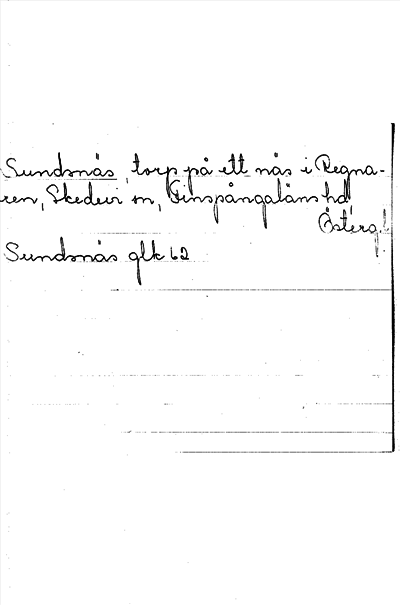 Sundsnäs, torp på ett näs i Regna-
ren, Skedevi sn, Finspångaläns hd,
Österg.
Sundsnäs glk 62